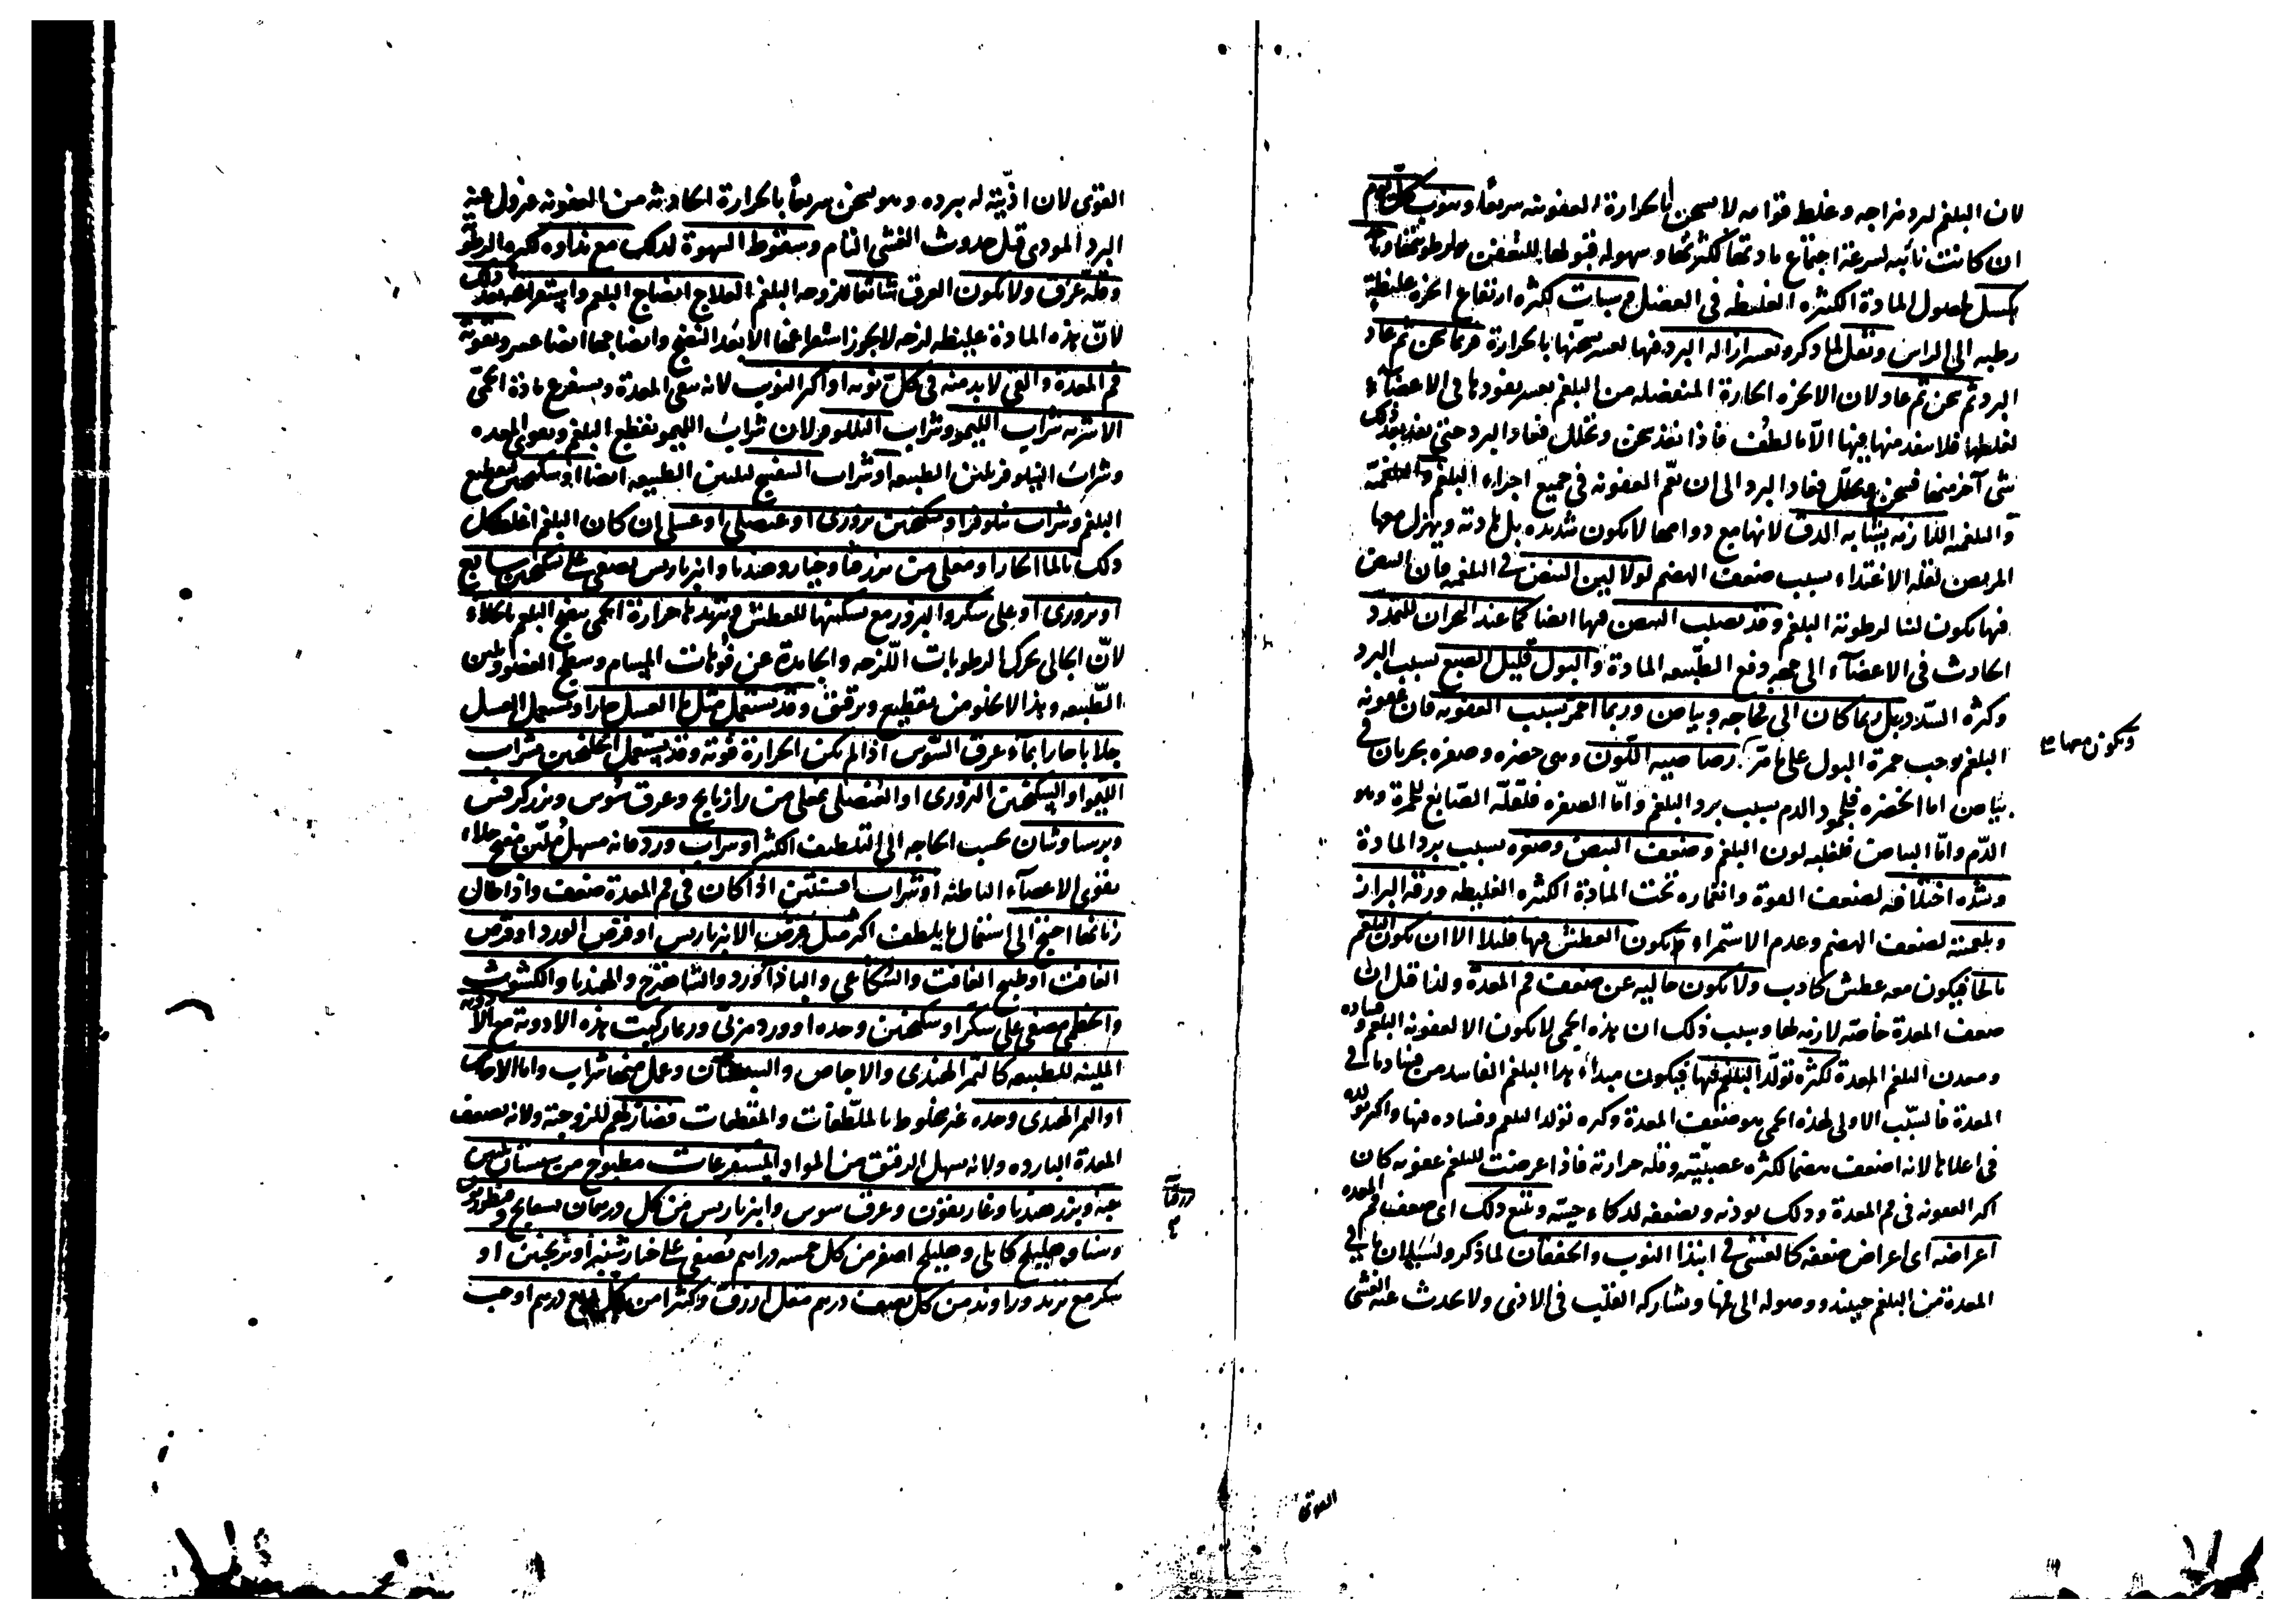 لان البلغم لبرد مزاجه وغلظ قوامه لا يسخن بالحرارة العفونيه سريعا وينوب كل يوم
ان كانت نائبه لسرعة اجتماع مادتها لكثرتها وسهوله قبولها للتعفن لرطوبتها
كسل لحلول المادة الكثيره الغليظه في العضل وسبات لكثره ارتفاع ابخرة غليظة
رطبه الى الراس وثقل لما ذكر وتعسر ازاله البرد فيها لعسر تسخنها بالحرارة فربما سخن ثم عاد
البرد ثم سخن ثم عاد لان الابخره الحارة المنفصله من البلغم يعسر نفوذها في الاعضاء
لغلظها فلا ينفذ منها فيها الا ما لطف فاذا نفذ سخن وتحلل فعاد البرد حتى ينفذ بعد ذلك
شئ آخر منها فيسخن ويتحلل فيعاد البرد الى ان تعم العفونه في جميع اجزاء البلغم
والبلغميه اللازمه يشابه الدق لانها مع دوامها لا تكون شديده بل هادئه ويهزل معها
المريض لقله الاغتذاء بسبب ضعف الهضم لولا لين النبض في البلغميه فان النبض
فيها يكون لينا لرطوبة البلغم وقد يصلب النبض فيها ايضا كما عند البحران للتمدد
الحادث في الاعضاء الى جهه دفع الطبيعه المادة والبول قليل الصبغ بسبب البرد
وكثره السدد بل ربما كان الى فجاجه وبياض وربما احمر بسبب العفونه فان عفونه
البلغم يوجب حمرة البول على ما مر رصاصيه اللون وهي خضره وصفره يجريان في
بياض اما الخضره فلجمود الدم بسبب برد البلغم واما الصفره فلقلة الصابغ للحمرة وهو
الدم واما البياض فلغلبه لون البلغم وضعف النبض وصغره بسبب برد المادة
وشده اختلافه لضعف القوة وانغماره تحت المادة الكثيره الغليظه ورقه البراز
وبلغميته لضعف الهضم وعدم الاستمراء ويكون العطش فيها قليلا الا ان يكون البلغم
مالحا فيكون معه عطش كاذب ولا تكون خاليه عن ضعف فم المعدة ولذا قيل ان
ضعف المعدة خاصته لازمه لها وسبب ذلك ان هذه الحمى لا يكون الا لعفونه البلغم وفساده
ومعدن البلغم المعدة لكثره تولد البلغم فيها فيكون مبداء هذا البلغم الفاسد من فساد ما في
المعدة فالسبب الاولى لهذه الحمى هو ضعف المعدة وكثره تولد البلغم وفساده فيها واكثر تولده
في اعلاها لانه اضعف هضما لكثره عصبيته وقله حرارته فاذا عرضت للبلغم عفونه كان
اكثر العفونه في فم المعدة وذلك يوذيه ويضعفه لذكاء حسه ويتبع ذلك اي ضعف فم المعده
اعراضه اي اعراض ضعفه كالغشي في ابتدا النوب والخفقان لما ذكر ولسيلان ما في
المعدة من البلغم حينئذ ووصوله الى فمها ويشاركه القلب في الاذى ولا يحدث عنه الغشي
وتكون معها
القوى
القوى لان اذيته له ببرده وهو يسخن سريعا بالحرارة الحادثه من العفونه فيزول عنه
البرد الموذي قبل حدوث الغشي التام وسقوط الشهوة لذلك مع نداوه لكثره الرطوبه
وقله عرق ولا يكون العرق شائعا للزوجه البلغم العلاج انضاج البلغم واستفراغه بعد ذلك
لان هذه المادة غليظه لزجه لا يجوز استفراغها الا بعد النضج وانضاجها ايضا عسر وتقويه
فم المعدة والقي لا بد منه في كل نوبه او اكثر النوب لانه ينقي المعدة ويستفرغ مادة الحمى
الاشربه شراب الليمو وشراب النيلوفر لان شراب الليمو يقطع البلغم ويقوي المعده
وشراب النيلوفر يلين الطبيعه او شراب البنفسج لتليين الطبيعه ايضا او سكنجبين لتقطيع
البلغم وشراب نيلوفر او سكنجبين بزوري او عنصلي او عسلي ان كان البلغم اغلظ كل
ذلك بالماء الحار او مغلي من بزر قثا وخيار وهندبا وانبرباريس يصفى على سكنجبين ساذج
او بزوري او على سكر والبزور مع تسكينها للعطش وتبريدها حرارة الحمى ينضج البلغم بالجلاء
لان الجالي يحرك الرطوبات اللزجه والجامدة عن فوهات المسام وسطح العضو ويلين
الطبيعه وهذا لا يخلو من تقطيع وترقيق وقد يستعمل مثل ماء العسل حارا ويستعمل العسل
جلابا حارا بماء عرق السوس اذا لم تكن الحرارة قوية وقد يستعمل الخلنجبين بشراب
الليمو او السكنجبين البزوري او العنصلي بمغلي من رازيانج وعرق سوس وبزر كرفس
وبرسياوشان بحسب الحاجه الى التلطيف الكثير او شراب ورد فانه مسهل ملين منضج جلاء
يقوي الاعضاء الباطنه او شراب افسنتين اذا كان في فم المعدة ضعف واذا طال
زمانها احتيج الى استعمال ما يلطف اكثر مثل قرص الانبرباريس او قرص الورد او قرص
الغافت او طبيخ الغافت والشكاعى والباذاورد والشاهترج والهندبا والكشوث
والخطمي مصفى على سكر او سكنجبين وحده او ورد مربى وربما ركبت هذه الادوية مع الادويه
الملينه للطبيعه كالتمر الهندي والاجاص والسبستان وعمل منها شراب واما الاجاص
او التمر الهندي وحده غير مخلوط بالملطفات والمقطعات فضار لهم للزوجته ولانه يضعف
المعدة البارده ولانه يسهل الرقيق من المواد المستفرغات مطبوخ من سبستان وتين
عنه وبزر هندبا وغاريقون وعرق سوس وانبرباريس من كل درهمان بسفايج وقنطوريون
وسنا وهليلج كابلي وهليلج اصفر من كل خمسه دراهم يصفى على خيار شنبر او ترنجبين او
سكر مع تربد وراوند من كل نصف درهم مقل ازرق وكثيرا من كل ربع درهم او حب